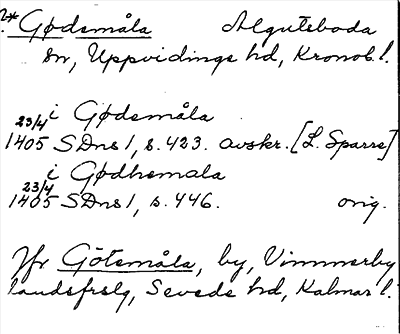 ?* Gödsmåla Algutsboda
sn, Uppvidinge hd, Kronob. l.
i Gødsmåla
23/4
1405 SDns 1, s. 423. avskr. [L. Sparre]
i Gødhsmala
23/4
1405 SDns 1, s. 446. orig.
Jfr Götemåla, by, Vimmerby
landsfrslg, Sevede hd, Kalmar l.